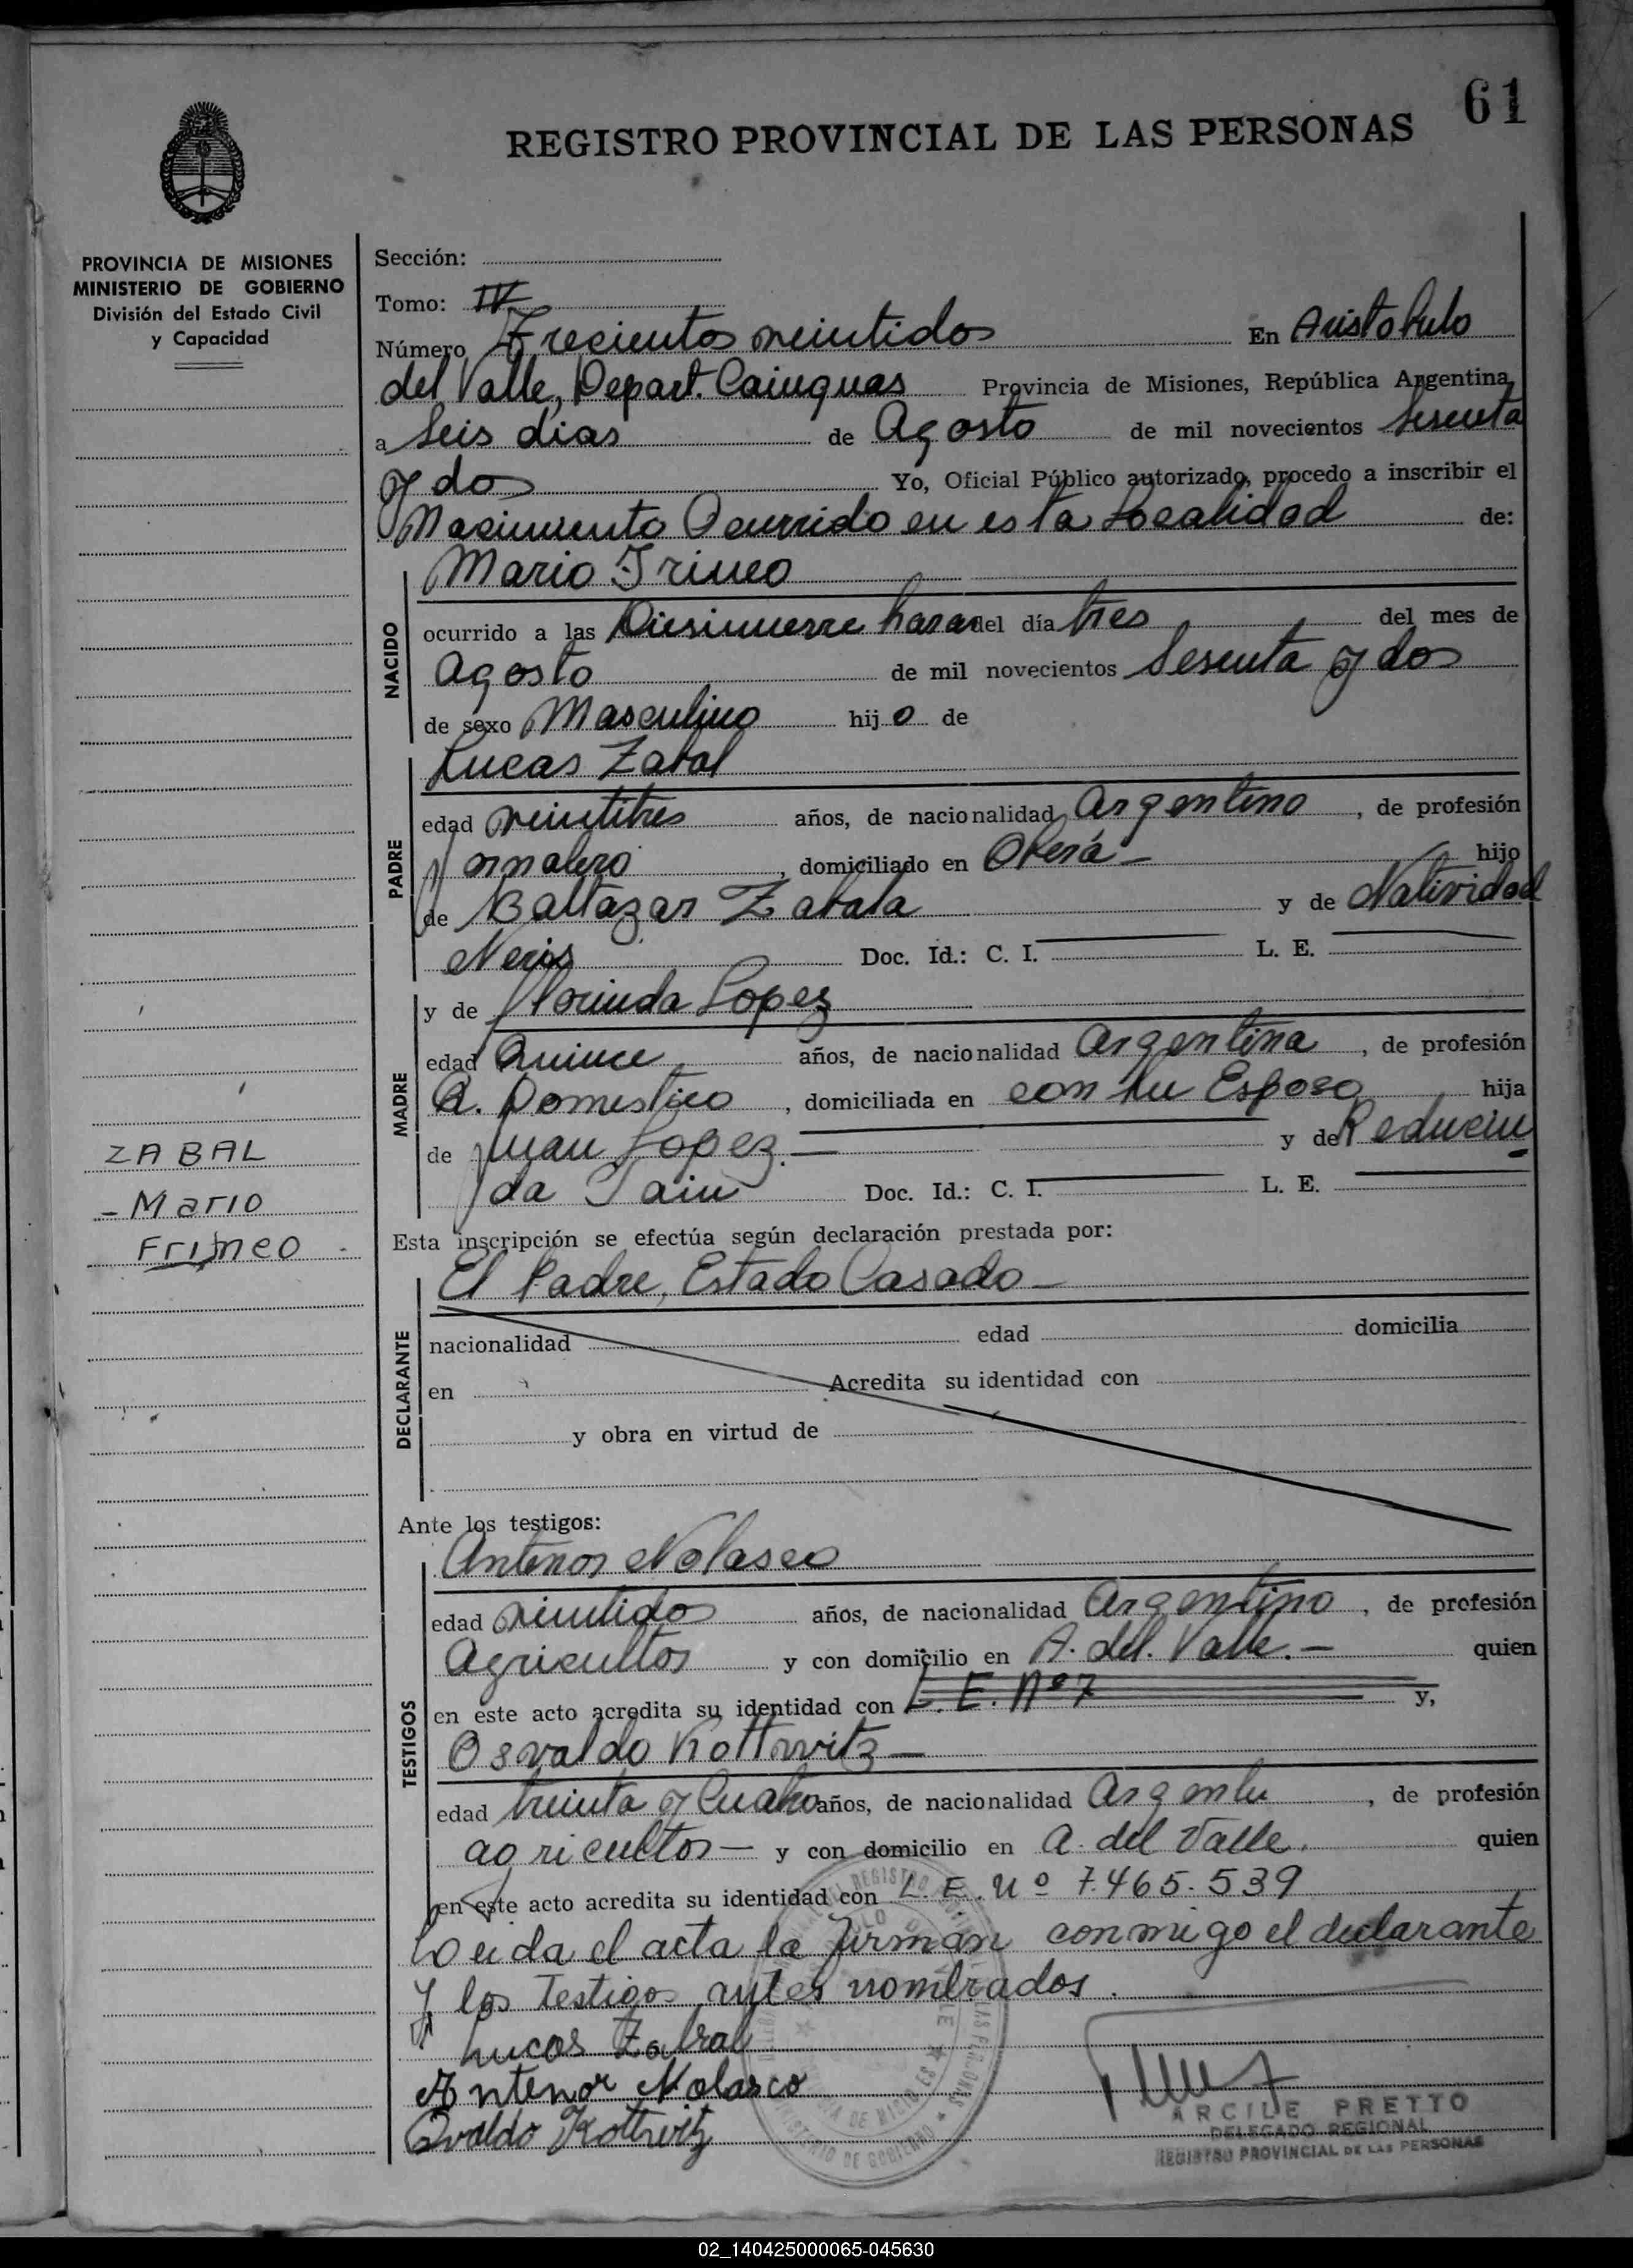 61
REGISTRO PROVINCIAL DE LAS PERSONAS
PROVINCIA DE MISIONES
MINISTERIO DE GOBIERNO
División del Estado Civil
y Capacidad
Sección:
Tomo: IV
Número Trecientos veintidos En Aristobulo
del Valle, Depart. Cainguas Provincia de Misiones, República Argentina,
a Seis dias de Agosto de mil novecientos Sesenta
y dos Yo, Oficial Público autorizado, procedo a inscribir el
Nacimiento Ocurrido en esta Localidad de:
NACIDO
Mario Irineo
ocurrido a las horas del día tres del mes de
Agosto de mil novecientos Sesenta y dos
de sexo Masculino hijo de
PADRE
Lucas Zabal
edad veintitres años, de nacionalidad Argentino, de profesión
Jornalero, domiciliado en Oberá - hijo
de Baltazar Zabala y de Natividad
Neris Doc. Id.: C. I. L. E.
MADRE
y de Florinda Lopez
edad Quince años, de nacionalidad Argentina, de profesión
Q. Domestico, domiciliada en con su Esposo hija
de Juan Lopez.- y de Reducin
da Doc. Id.: C. I. L. E.
ZABAL
- Mario
Esta inscripción se efectúa según declaración prestada por:
DECLARANTE
El Padre, Estado Casado -
nacionalidad edad domicilia
en Acredita su identidad con
y obra en virtud de
Ante los testigos:
TESTIGOS
Antenor Nolasco
edad veintidos años, de nacionalidad Argentino, de profesión
Agricultor y con domicilio en A. del. Valle.- quien
en este acto acredita su identidad con L. E. Nº 7 y,
Osvaldo Kottwitz -
edad treinta y Cuatro años, de nacionalidad , de profesión
agricultor - y con domicilio en A. del Valle. quien
en este acto acredita su identidad con L. E. Nº 7.465.539
Leida el acta la firman conmigo el declarante
y los testigos antes nombrados.
Lucas Zabral
Antenor Nolasco
Osvaldo Kottwitz
ARCILE PRETTO
DELEGADO REGIONAL
REGISTRO PROVINCIAL DE LAS PERSONAS
02_140425000065-045630